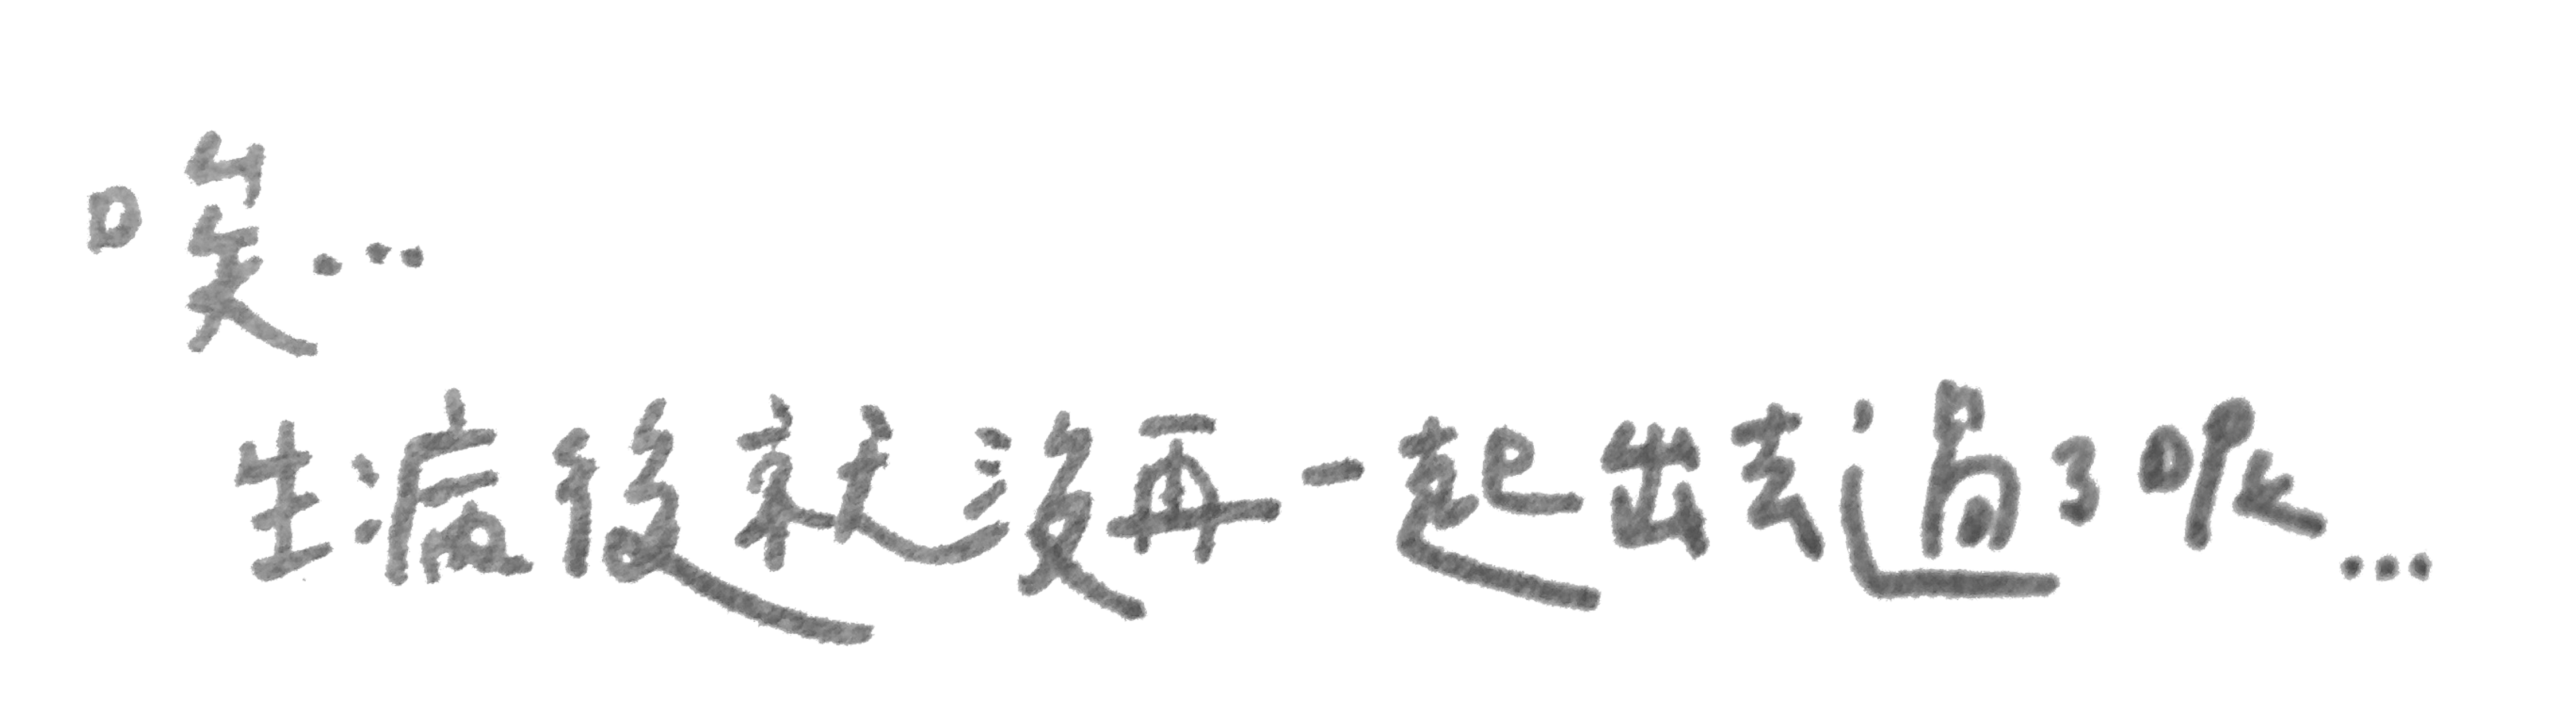 唉...
生病後就沒再一起出去過了呢...